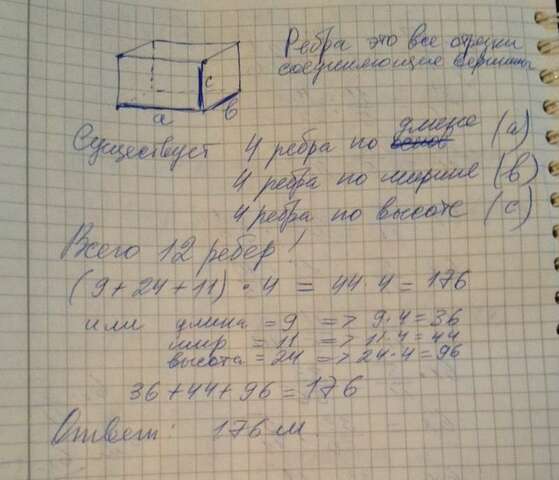 Ребра это все отрезки
соединяющие вершины
c
a
в
Существует 4 ребра по длине (a)
4 ребра по ширине (в)
4 ребра по высоте (c)
Всего 12 ребер!
(9+24+11) · 4 = 44·4 = 176
или длина = 9 => 9·4=36
шир = 11 => 11·4=44
высота = 24 => 24·4=96
36+44+96=176
Ответ: 176 м.